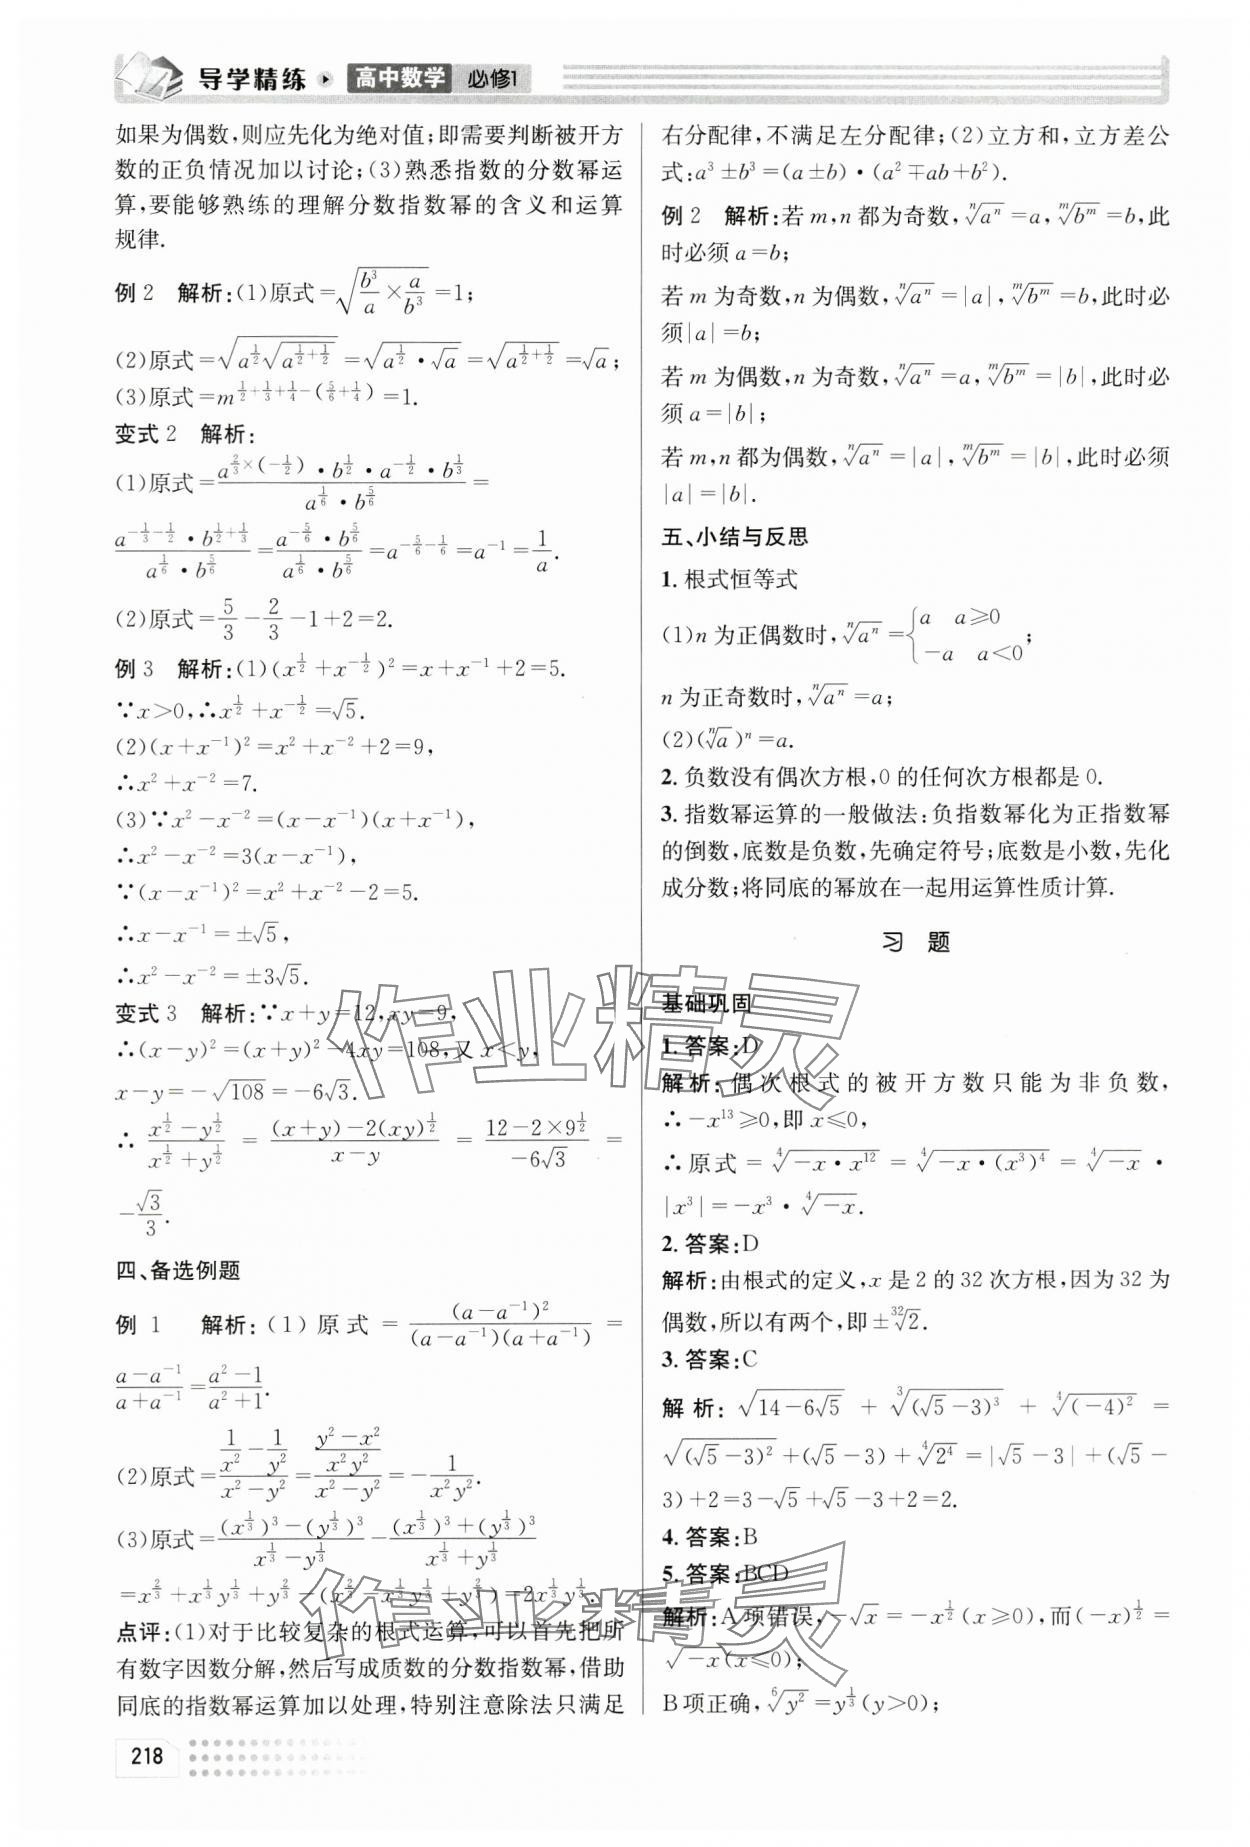 导学精练 高中数学 必修1
如果为偶数,则应先化为绝对值;即需要判断被开方
数的正负情况加以讨论;(3)熟悉指数的分数幂运
算,要能够熟练的理解分数指数幂的含义和运算
规律.
例2 解析:(1)原式=√(b³/a × a/b³)=1;
(2)原式=√(a^(1/2)√(a^(1/2+1/2)))=√(a^(1/2)·√a)=√(a^(1/2+1/2))=√a;
(3)原式=m^(1/2+1/3+1/4-(5/6+1/4))=1.
变式2 解析:
(1)原式=(a^(2/3×(-1/2))·b^(1/2)·a^(-1/2)·b^(1/3))/(a^(1/6)·b^(5/6))=
(a^(-1/3-1/2)·b^(1/2+1/3))/(a^(1/6)·b^(5/6))=(a^(-5/6)·b^(5/6))/(a^(1/6)·b^(5/6))=a^(-5/6-1/6)=a⁻¹=1/a.
(2)原式=5/3-2/3-1+2=2.
例3 解析:(1)(x^(1/2)+x^(-1/2))²=x+x⁻¹+2=5.
∵x>0,∴x^(1/2)+x^(-1/2)=√5.
(2)(x+x⁻¹)²=x²+x⁻²+2=9,
∴x²+x⁻²=7.
(3)∵x²-x⁻²=(x-x⁻¹)(x+x⁻¹),
∴x²-x⁻²=3(x-x⁻¹),
∵(x-x⁻¹)²=x²+x⁻²-2=5.
∴x-x⁻¹=±√5,
∴x²-x⁻²=±3√5.
变式3 解析:∵x+y=12,xy=9,
∴(x-y)²=(x+y)²-4xy=108,又x<y,
x-y=-√108=-6√3.
∴(x^(1/2)-y^(1/2))/(x^(1/2)+y^(1/2))=((x+y)-2(xy)^(1/2))/(x-y)=(12-2×9^(1/2))/(-6√3)=
-√3/3.
四、备选例题
例1 解析:(1)原式=(a-a⁻¹)²/((a-a⁻¹)(a+a⁻¹))=
(a-a⁻¹)/(a+a⁻¹)=(a²-1)/(a²+1).
(2)原式=(1/x²-1/y²)/(x²-y²)=((y²-x²)/(x²y²))/(x²-y²)=-1/(x²y²).
(3)原式=((x^(1/3))³-(y^(1/3))³)/(x^(1/3)-y^(1/3))-((x^(1/3))³+(y^(1/3))³)/(x^(1/3)+y^(1/3))
=x^(2/3)+x^(1/3)y^(1/3)+y^(2/3)-(x^(2/3)-x^(1/3)y^(1/3)+y^(2/3))=2x^(1/3)y^(1/3).
点评:(1)对于比较复杂的根式运算,可以首先把所
有数字因数分解,然后写成质数的分数指数幂,借助
同底的指数幂运算加以处理,特别注意除法只满足
右分配律,不满足左分配律;(2)立方和,立方差公
式:a³±b³=(a±b)·(a²∓ab+b²).
例2 解析:若m,n都为奇数,ⁿ√aⁿ=a,ᵐ√bᵐ=b,此
时必须a=b;
若m为奇数,n为偶数,ⁿ√aⁿ=|a|,ᵐ√bᵐ=b,此时必
须|a|=b;
若m为偶数,n为奇数,ⁿ√aⁿ=a,ᵐ√bᵐ=|b|,此时必
须a=|b|;
若m,n都为偶数,ⁿ√aⁿ=|a|,ᵐ√bᵐ=|b|,此时必须
|a|=|b|.
五、小结与反思
1.根式恒等式
(1)n为正偶数时,ⁿ√aⁿ={a a≥0
-a a<0;
n为正奇数时,ⁿ√aⁿ=a;
(2)(ⁿ√a)ⁿ=a.
2.负数没有偶次方根,0的任何次方根都是0.
3.指数幂运算的一般做法:负指数幂化为正指数幂
的倒数,底数是负数,先确定符号;底数是小数,先化
成分数;将同底的幂放在一起用运算性质计算.
习 题
基础巩固
1.答案:D
解析:偶次根式的被开方数只能为非负数,
∴-x¹³≥0,即x≤0,
∴原式=⁴√(-x·x¹²)=⁴√(-x·(x³)⁴)=⁴√(-x)·
|x³|=-x³·⁴√(-x).
2.答案:D
解析:由根式的定义,x是2的32次方根,因为32为
偶数,所以有两个,即±³²√2.
3.答案:C
解析:√(14-6√5)+³√((√5-3)³)+⁴√((-4)²)=
√((√5-3)²)+(√5-3)+⁴√(2⁴)=|√5-3|+(√5-
3)+2=3-√5+√5-3+2=2.
4.答案:B
5.答案:BCD
解析:A项错误,-√x=-x^(1/2)(x≥0),而(-x)^(1/2)=
√(-x)(x≤0);
B项正确,⁶√(y²)=y^(1/3)(y>0);
218
作业精灵
作业精灵